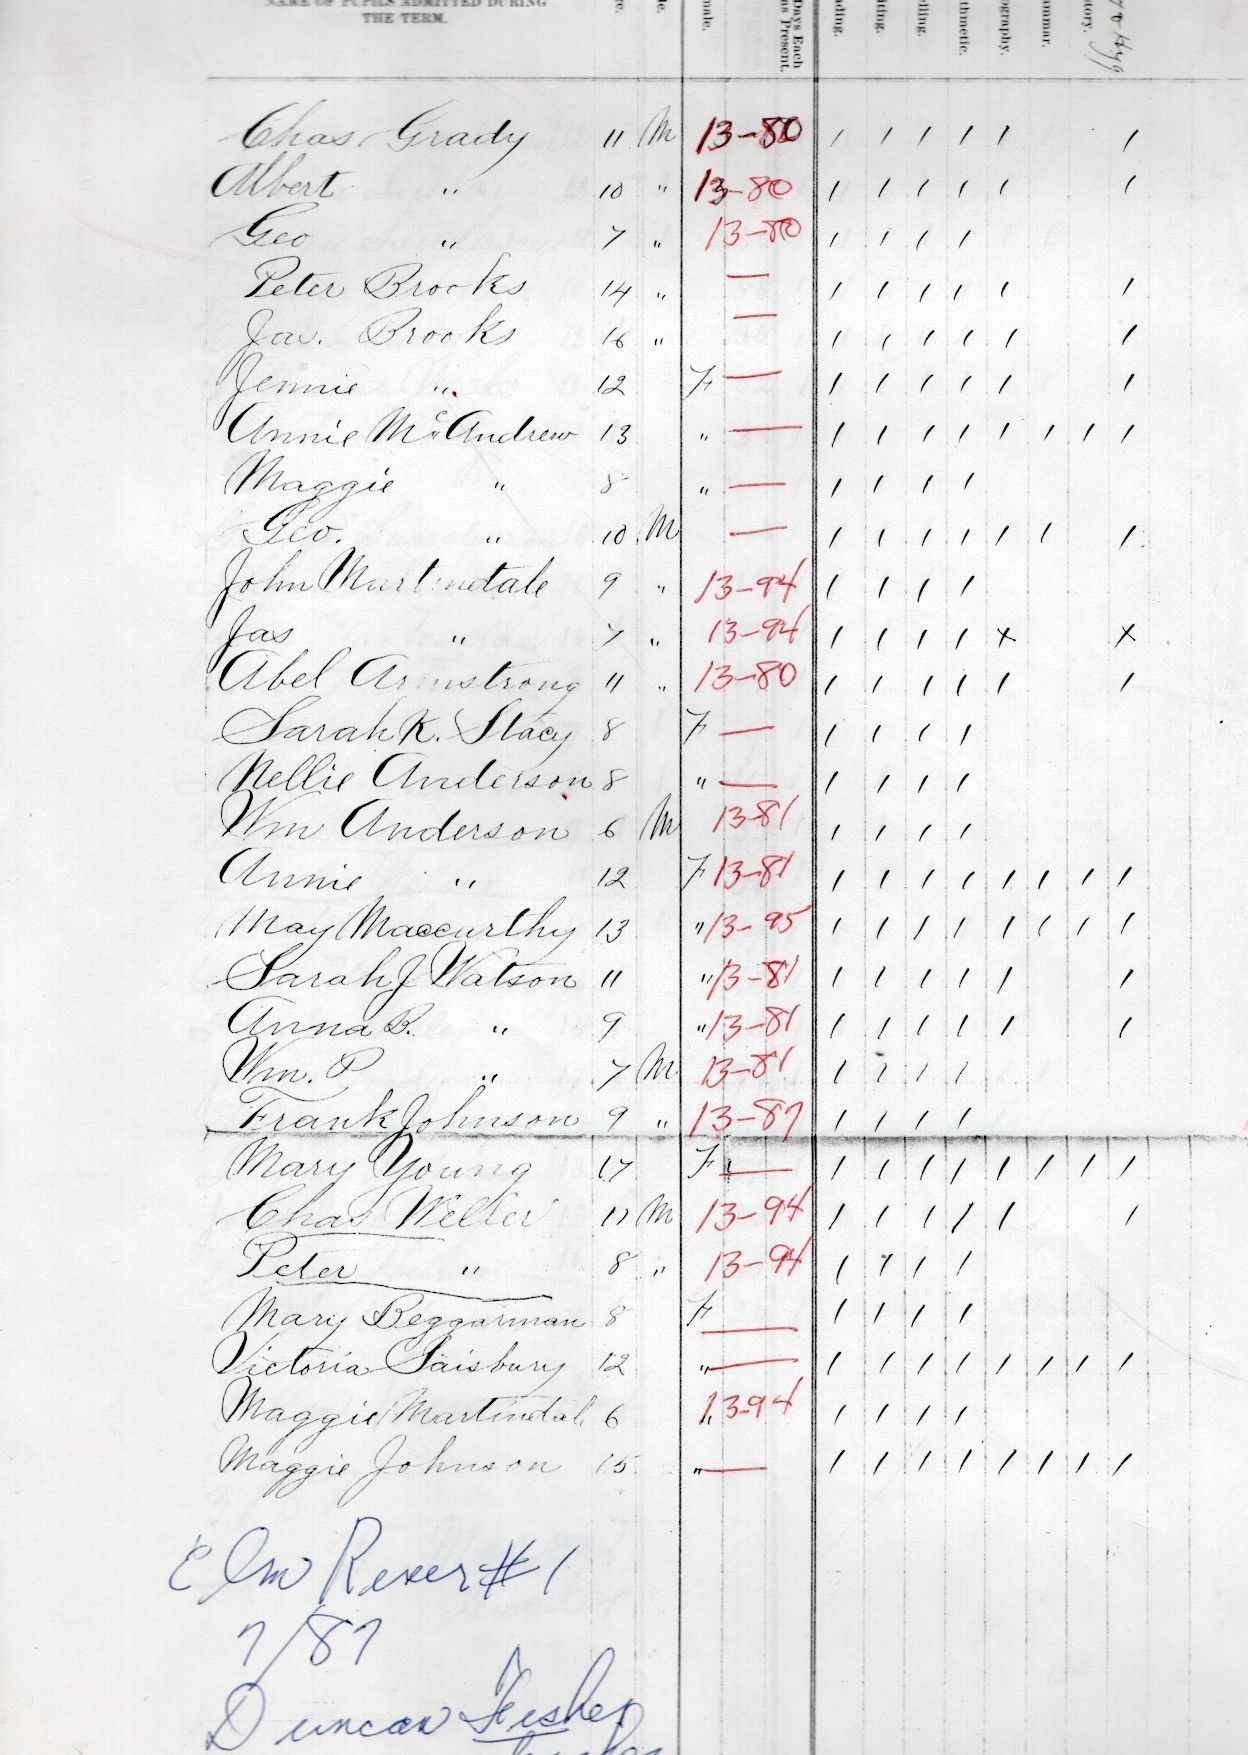 NAME OF PUPILS ADMITTED DURING
THE TERM.
ge. le. male. Days Each
as Present. ading. iting. elling. thmetic. ography. mmar. story. Hyg
Chas Grady 11 M 13-80 / / / / / /
Albert " 10 " 13-80 / / / / / /
Geo " 7 " 13-80 / / / /
Peter Brooks 14 " — / / / / / /
Jas. Brooks 16 " — / / / / / /
Jennie " 12 F — / / / / / /
Annie McAndrew 13 " — / / / / / / / /
Maggie " 8 " — / / / /
Geo. " 10 M — / / / / / / /
John Martindale 9 " 13-94 / / / /
Jas " 7 " 13-94 / / / / x x
Abel Armstrong 11 " 13-80 / / / / / /
Sarah K. Stacy 8 F — / / / /
Nellie Anderson 8 " — / / / /
Wm Anderson 6 M 13-81 / / / /
Annie " 12 F 13-81 / / / / / / / /
May Maccurthy 13 " 13-95 / / / / / / / /
Sarah J Watson 11 " 13-81 / / / / / /
Anna B. " 9 " 13-81 / / / / / /
Wm. P " 7 M 13-81 / / / /
Frank Johnson 9 " 13-87 / / / /
Mary Young 17 F — / / / / / / / /
Chas Weller 11 M 13-94 / / / / / /
Peter " 8 " 13-94 / / / /
Mary Beggarman 8 F — / / / /
Victoria Saisbury 12 " — / / / / / / / /
Maggie Martindal 6 " 13-94 / / / /
Maggie Johnson 15 " — / / / / / / / /
Elm River #1
7/87
Duncan Fisher